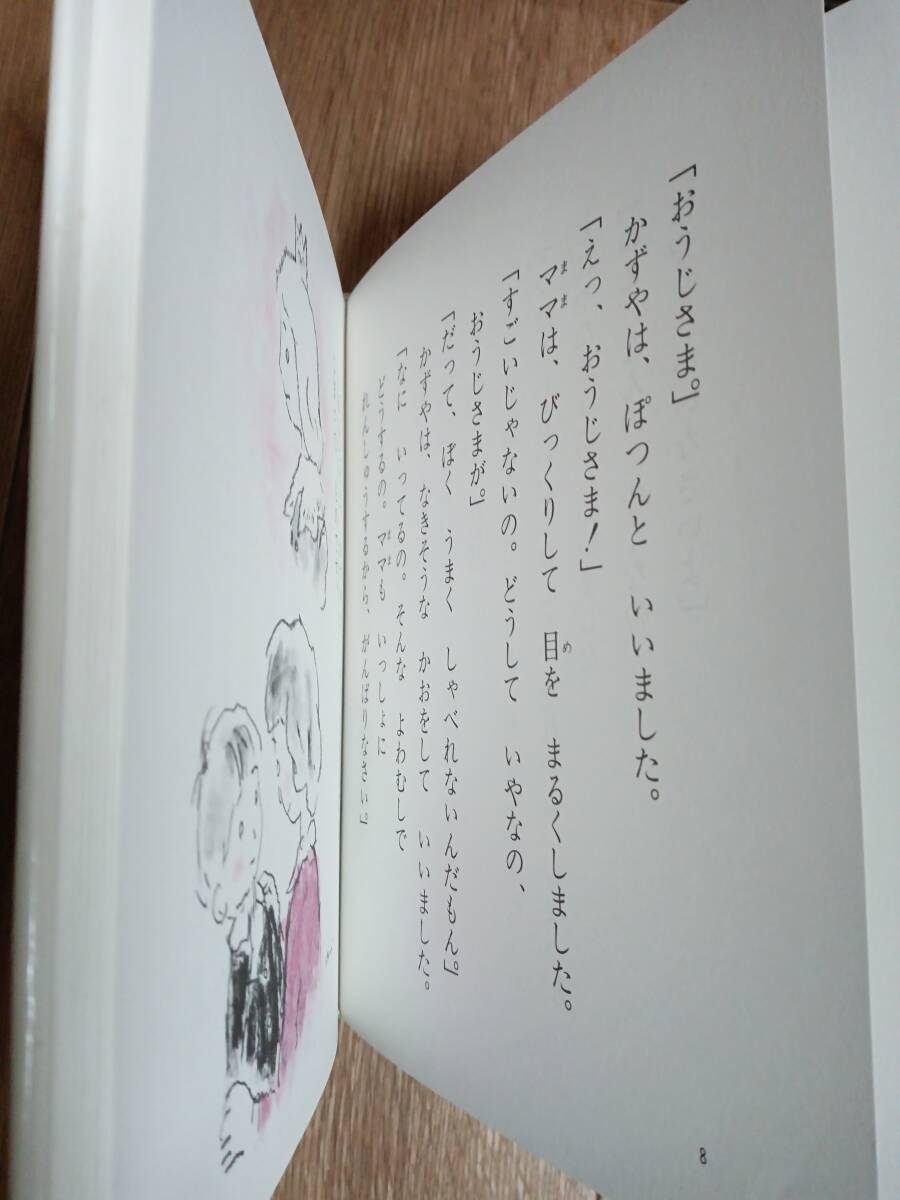 「おうじさま。」
かずやは、ぽつんと いいました。
「えっ、おうじさま!」
ママは、びっくりして 目を まるくしました。
「すごいじゃないの。どうして いやなの、
おうじさまが。」
「だって、ぼく うまく しゃべれないんだもん。」
かずやは、なきそうな かおをして いいました。
「なに いってるの。そんな よわむしで
どうするの。ママも いっしょに
れんしゅうするから、がんばりなさい。」
8